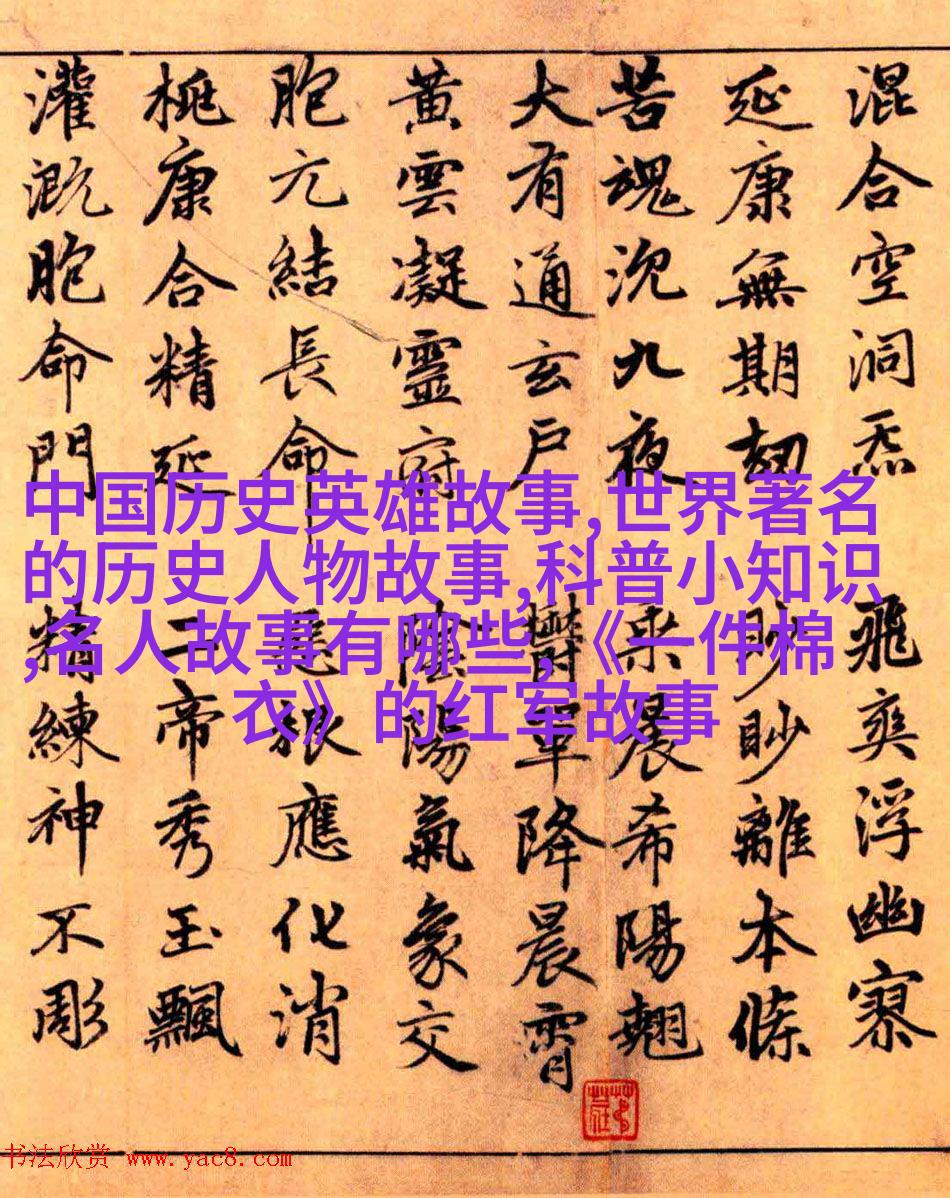 混合空洞炁 飛爽浮幽寥
延康無期劫 眇眇離本條
苦魂沉九夜 乘晨希陽翹
大有通玄戶 欝單降晨霄
黃雲凝靈府 陰陽氣象交
胞亢結長命 應化消
桃康合精延 二帝秀玉飄
灌溉胞命門 精練神不彫
中国历史英雄故事,世界著名
的历史人物故事,科普小知识
,名人故事有哪些,《一件棉
衣》的红军故事
书法欣赏 www.yac8.com